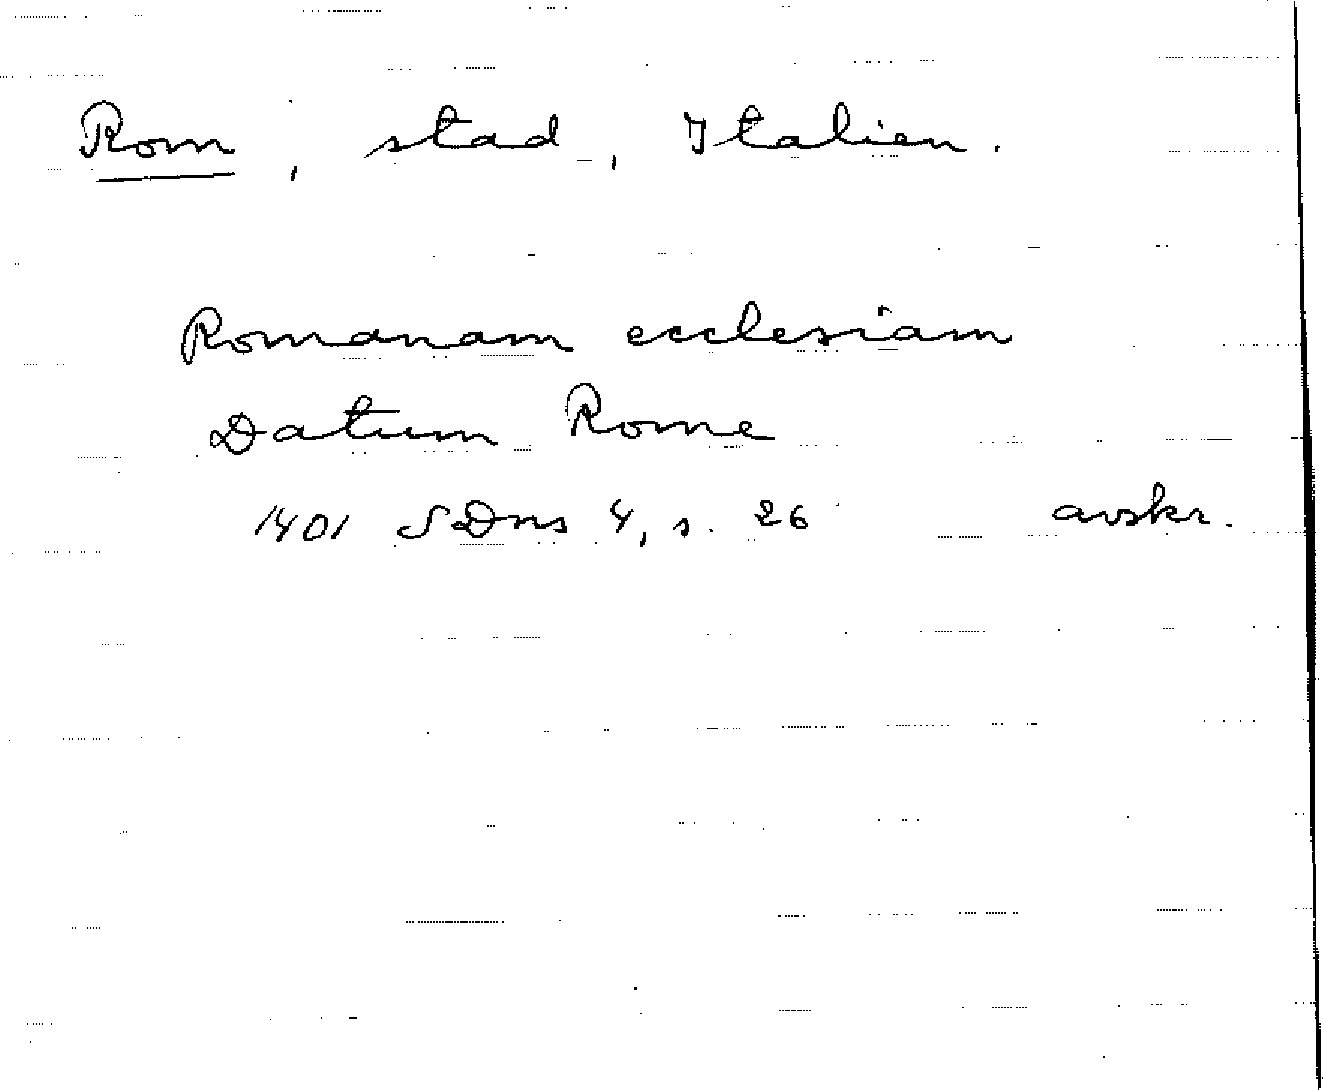 Rom, stad, Italien.
Romanam ecclesiam
Datum Rome
1401 SDns 4, s. 26 avskr.